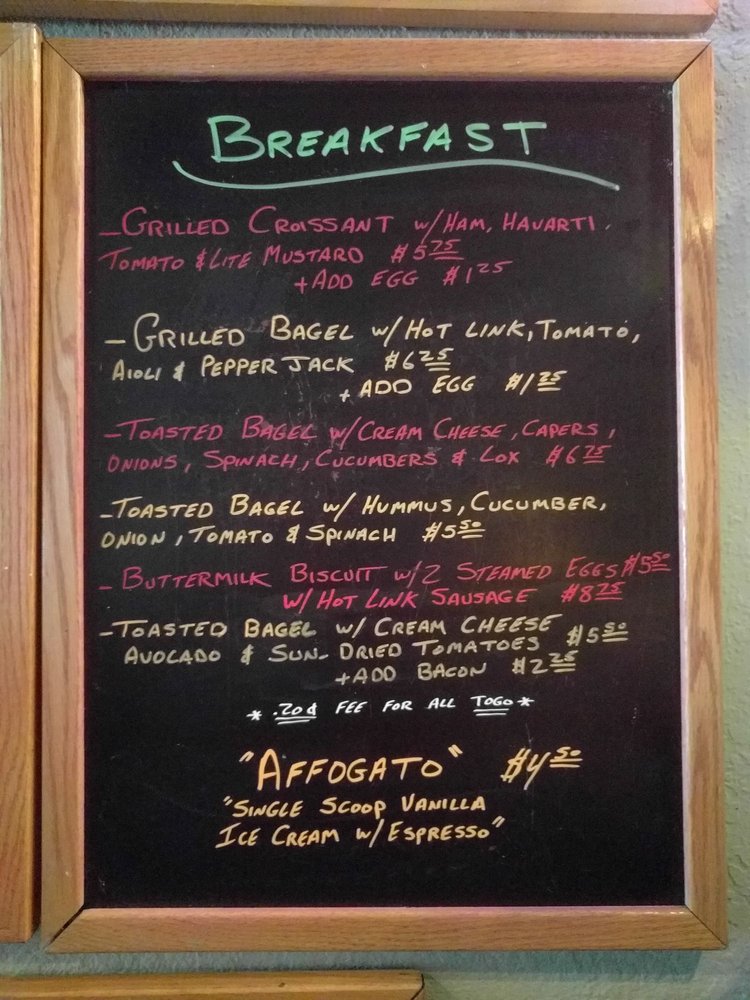 BREAKFAST
- GRILLED CROISSANT W/ HAM, HAVARTI,
TOMATO & LITE MUSTARD $5.75
+ ADD EGG $1.25
- GRILLED BAGEL W/ HOT LINK, TOMATO,
AIOLI & PEPPER JACK $6.25
+ ADD EGG $1.25
- TOASTED BAGEL W/ CREAM CHEESE, CAPERS,
ONIONS, SPINACH, CUCUMBERS & LOX $6.75
- TOASTED BAGEL W/ HUMMUS, CUCUMBER,
ONION, TOMATO & SPINACH $5.50
- BUTTERMILK BISCUIT W/ 2 STEAMED EGGS $5.50
W/ HOT LINK SAUSAGE $8.75
- TOASTED BAGEL W/ CREAM CHEESE
AVOCADO & SUN-DRIED TOMATOES $5.50
+ ADD BACON $2.25
* .20¢ FEE FOR ALL TOGO *
"AFFOGATO" $4.50
"SINGLE SCOOP VANILLA
ICE CREAM W/ ESPRESSO"